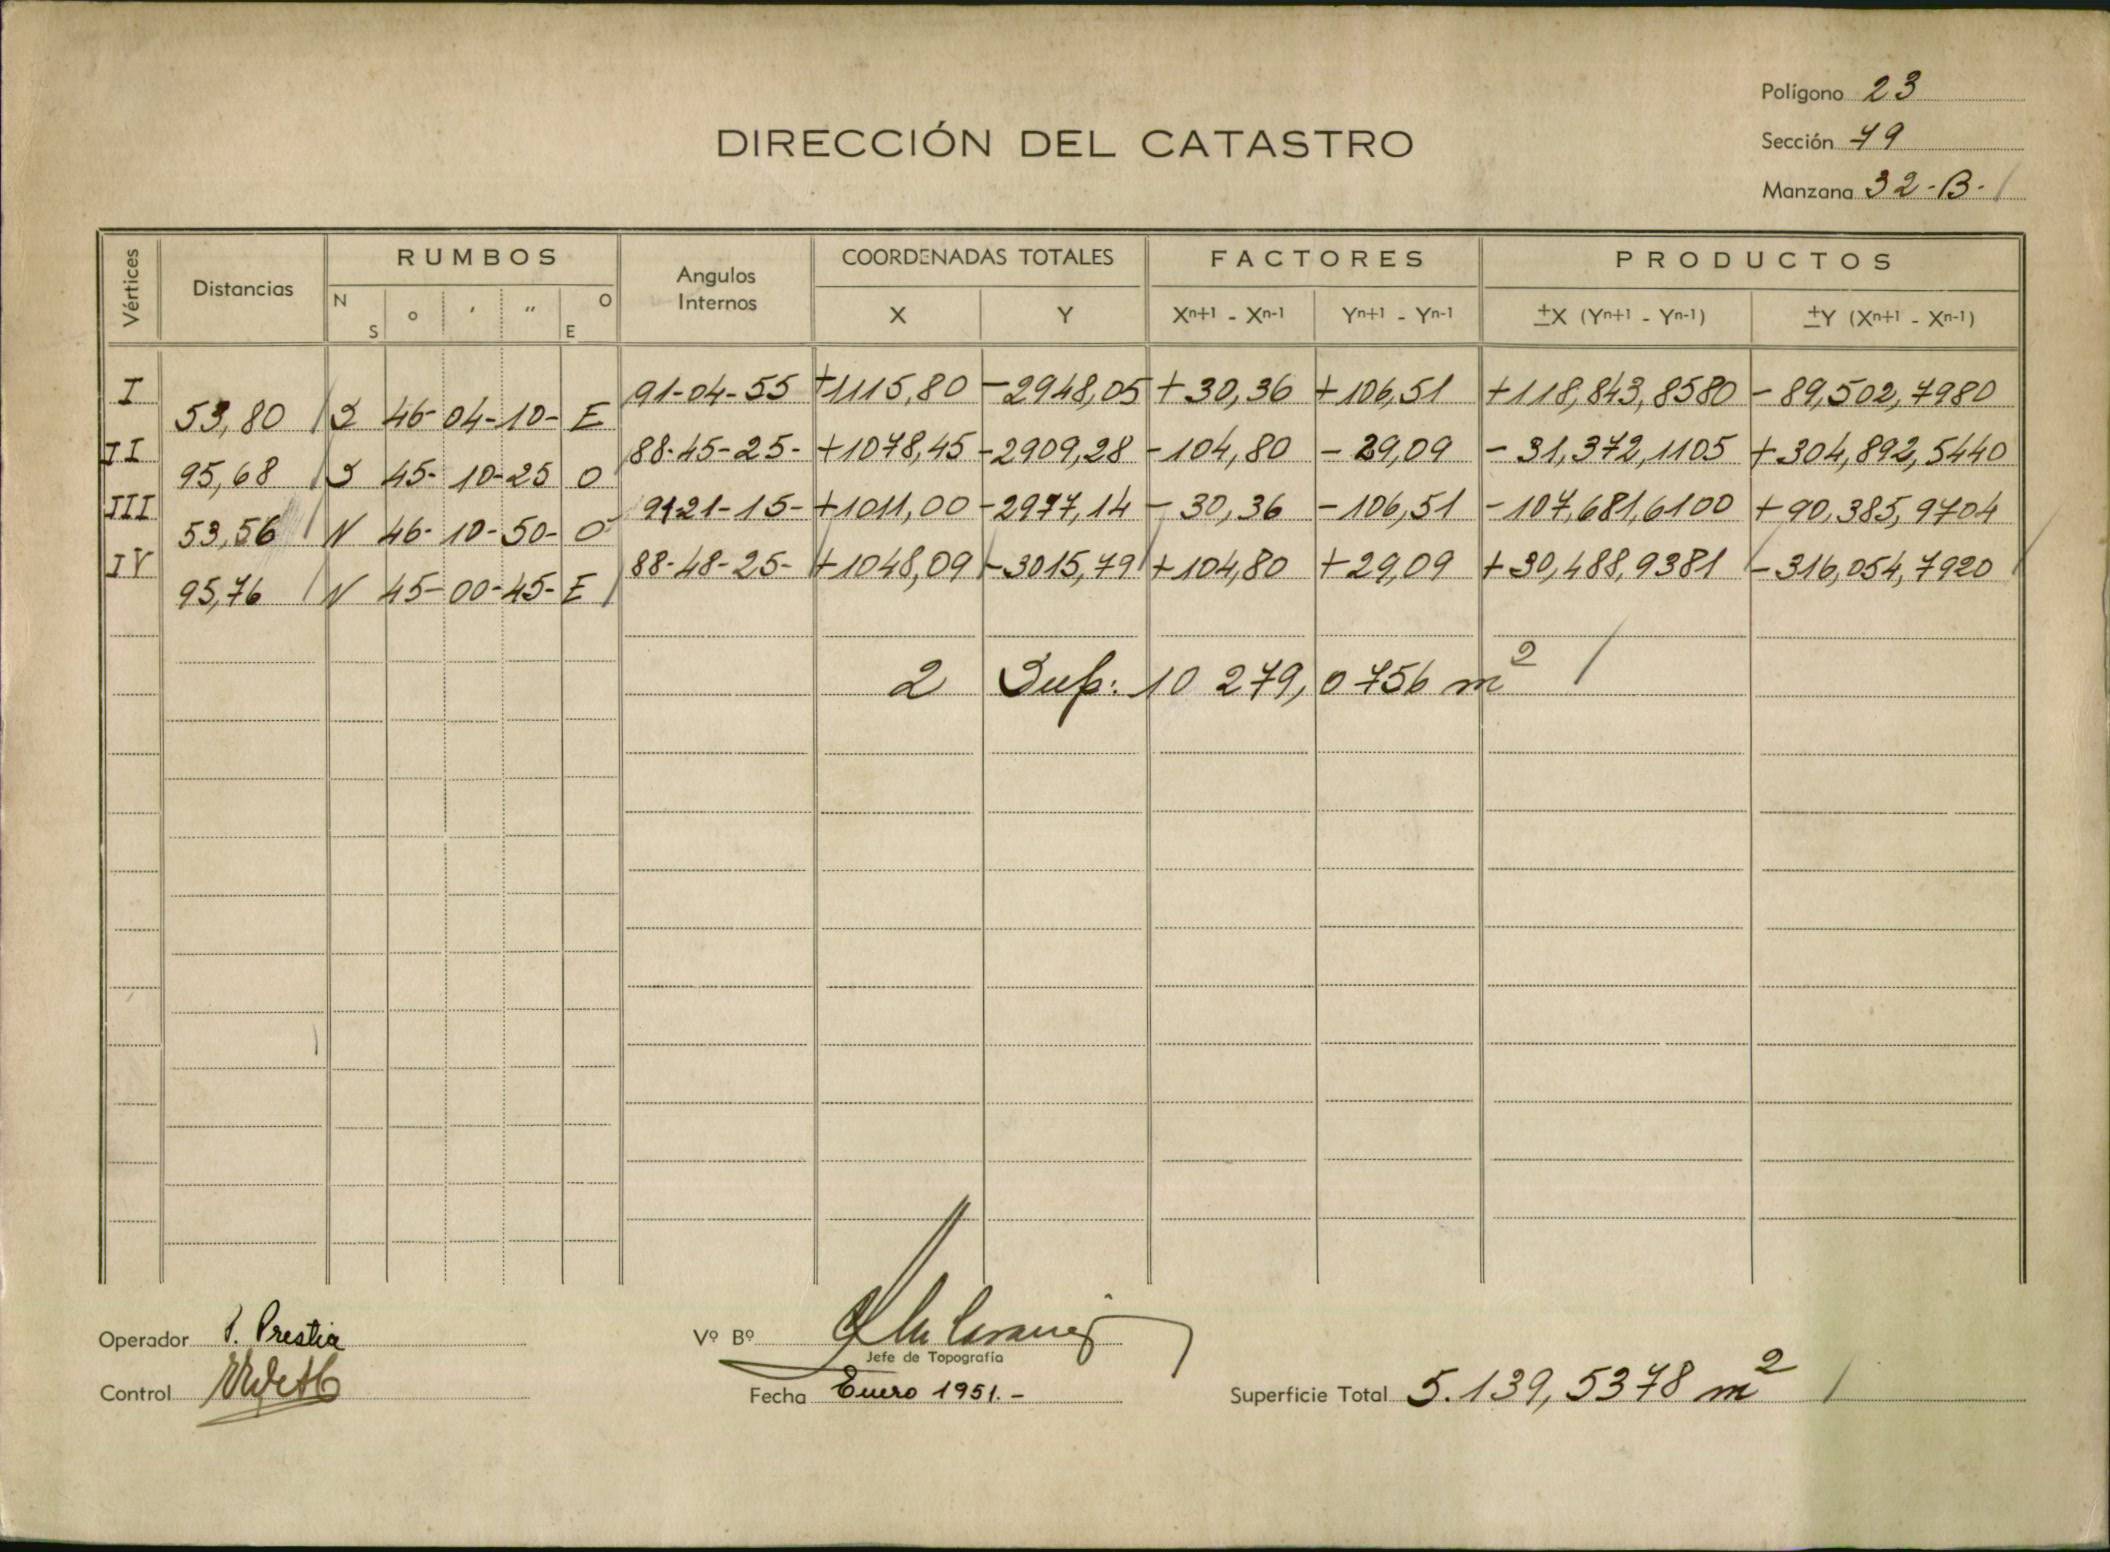 Polígono 23
DIRECCIÓN DEL CATASTRO
Sección 79
Manzana 32-B-
Vértices Distancias RUMBOS Angulos Internos COORDENADAS TOTALES FACTORES PRODUCTOS
N S o ' " O E X Y Xn+1 - Xn-1 Yn+1 - Yn-1 ±X (Yn+1 - Yn-1) ±Y (Xn+1 - Xn-1)
I 91-04-55 +1115,80 -2948,05 +30,36 +106,51 +118,843,8580 -89,502,7980
53,80 S 46-04-10- E
II 88-45-25- +1078,45 -2909,28 -104,80 -29,09 -31,372,1105 +304,892,5440
95,68 S 45-10-25 O
III 91-21-15- +1011,00 -2977,14 -30,36 -106,51 -107,681,6100 +90,385,9704
53,56 N 46-10-50- O
IV 88-48-25- +1048,09 -3015,79 +104,80 +29,09 +30,488,9381 -316,054,7920
95,76 N 45-00-45- E
2 Sup: 10 279,0756 m2
Operador Prestia Vº Bº
Jefe de Topografía
Control Fecha Enero 1951.- Superficie Total 5.139,5378 m2